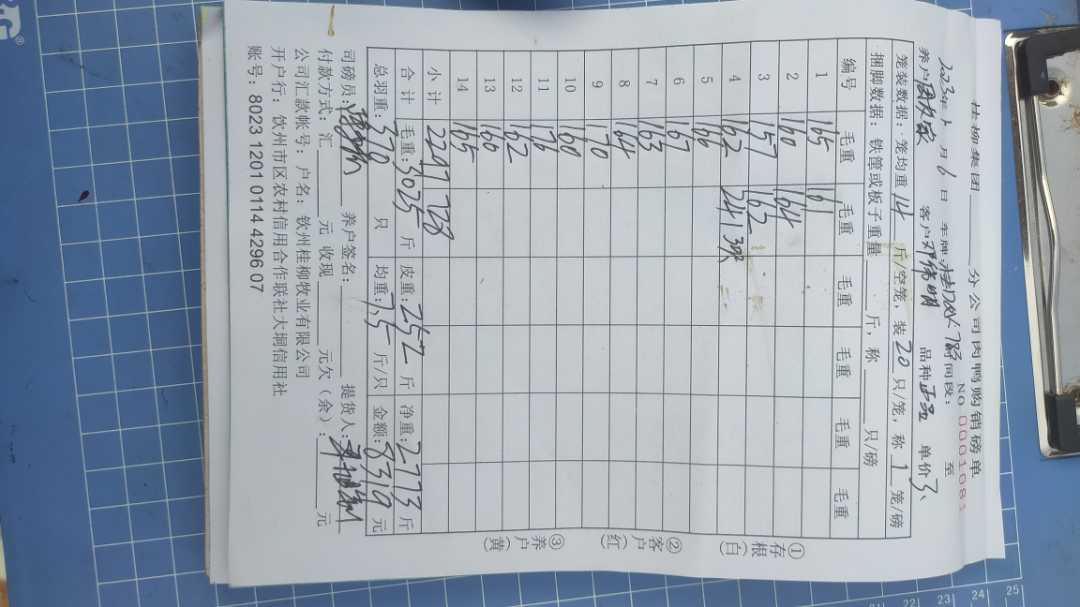 桂柳集团 分公司肉鸭购销磅单
NO 0001081
2023年 月 6 日 车牌: 时间段: 至
养户 客户邓伟明 品种正品 单价3
笼装数据:笼均重14斤/空笼,装20只/笼,称1笼/磅
捆脚数据:铁篦或板子重量 斤,称 只/磅
编号 毛重 毛重 毛重 毛重 毛重 毛重
1 165 161
2 160 164
3 157 162
4 162 241
5 166
6 167
7 163
8 164
9 170
10 160
11 176
12 162
13 160
14 165
小计 2297 728
合计 毛重:3025斤 皮重:252斤 净重:2773斤
总羽重:370只 均重:7.5斤/只 金额:8319元
司磅员: 养户签名: 提货人:
付款方式:汇 元 收现 元欠(余): 元
公司汇款帐号:户名:钦州桂柳牧业有限公司
开户行:钦州市区农村信用合作联社大垌信用社
账号:8023 1201 0114 4296 07
①存根(白)
②客户(红)
③养户(黄)
21 22 23 24 25